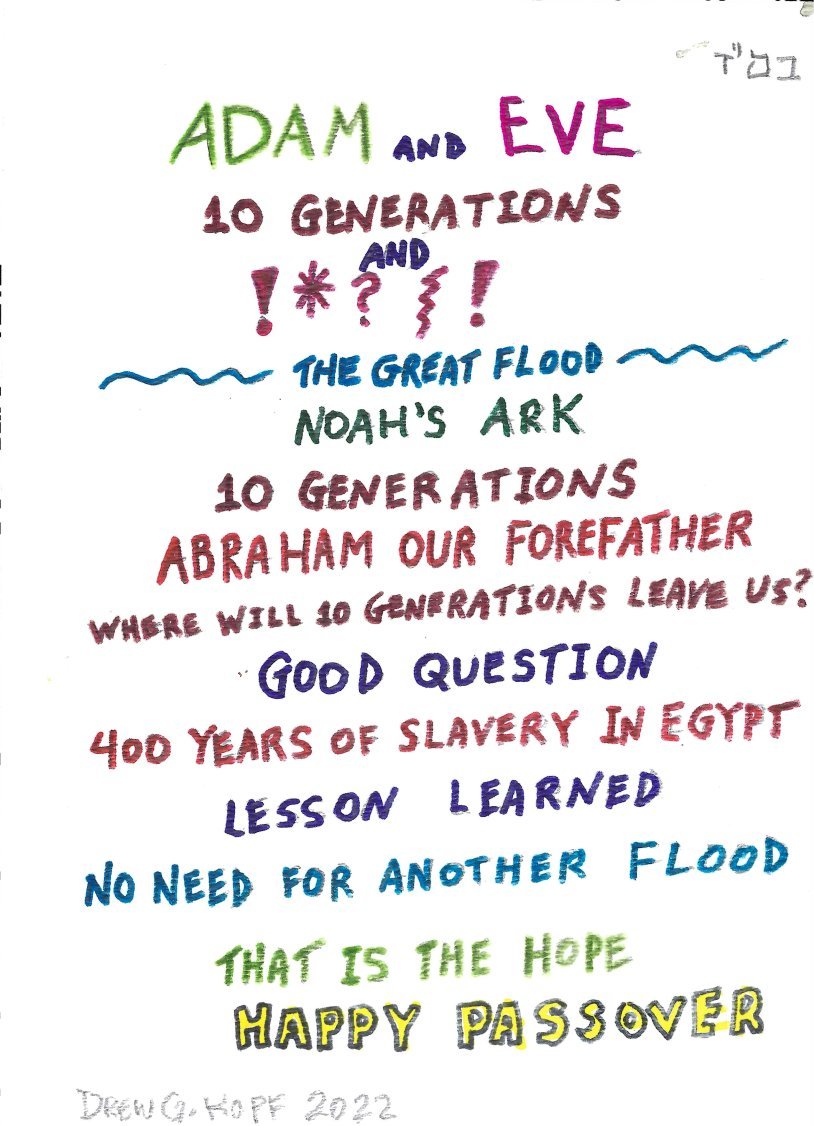 בס"ד
ADAM AND EVE
10 GENERATIONS
AND
! * ? ⌇ !
THE GREAT FLOOD
NOAH'S ARK
10 GENERATIONS
ABRAHAM OUR FOREFATHER
WHERE WILL 10 GENERATIONS LEAVE US?
GOOD QUESTION
400 YEARS OF SLAVERY IN EGYPT
LESSON LEARNED
NO NEED FOR ANOTHER FLOOD
THAT IS THE HOPE
HAPPY PASSOVER
DREW G. KOPF 2022